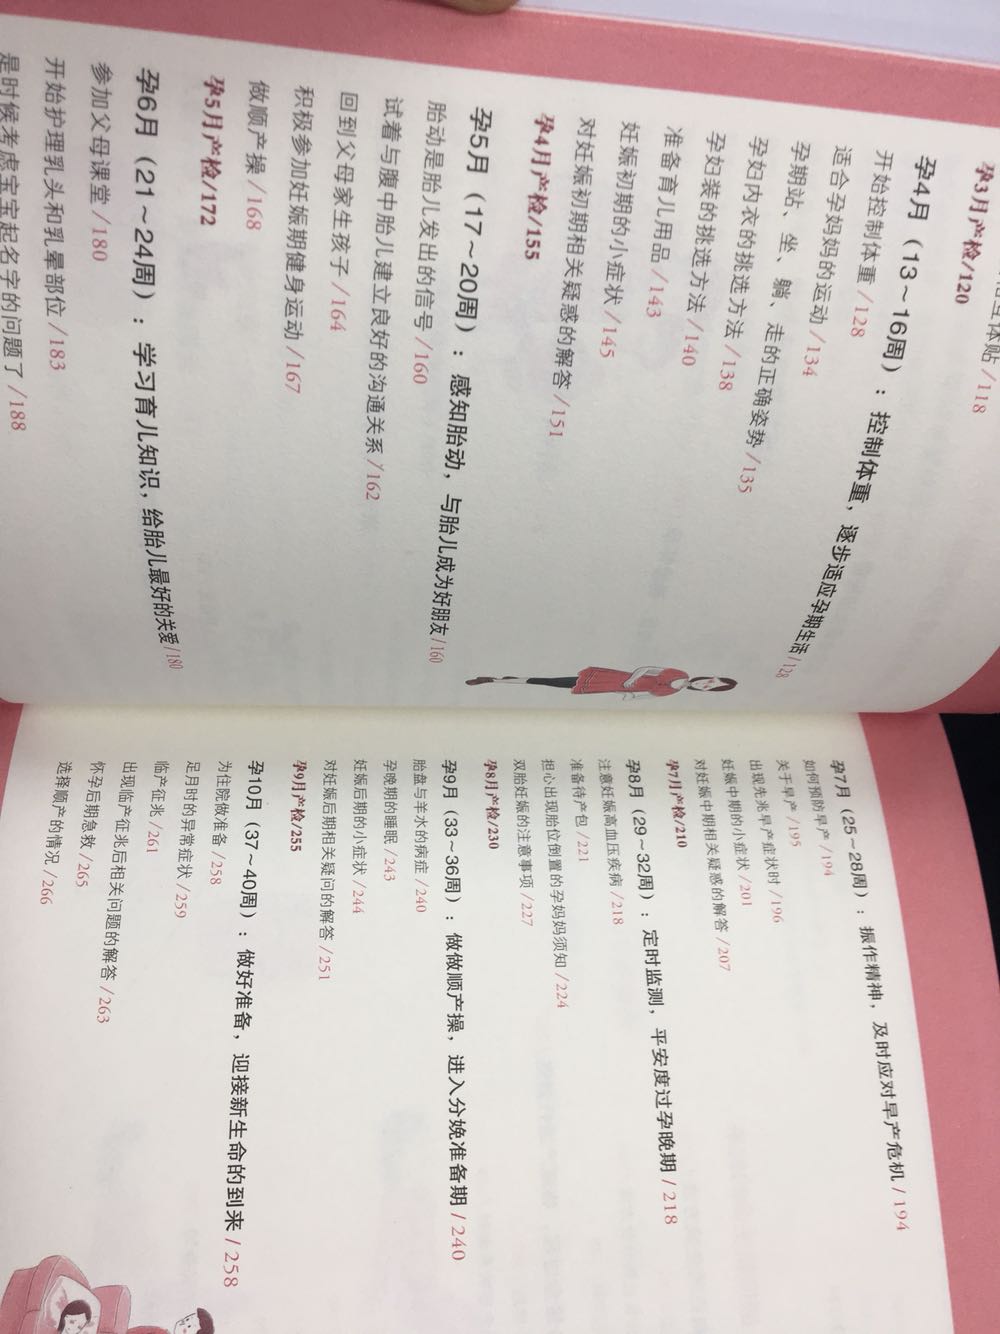 体贴/118
孕3月产检/120
孕4月（13～16周）：控制体重，逐步适应孕期生活/128
开始控制体重/128
适合孕妈妈的运动/134
孕期站、坐、躺、走的正确姿势/135
孕妇内衣的挑选方法/138
孕妇装的挑选方法/140
准备育儿用品/143
妊娠初期的小症状/145
对妊娠初期相关疑惑的解答/151
孕4月产检/155
孕5月（17～20周）：感知胎动，与胎儿成为好朋友/160
胎动是胎儿发出的信号/160
试着与腹中胎儿建立良好的沟通关系/162
回到父母家生孩子/164
积极参加妊娠期健身运动/167
做顺产操/168
孕5月产检/172
孕6月（21～24周）：学习育儿知识，给胎儿最好的关爱/180
参加父母课堂/180
开始护理乳头和乳晕部位/183
是时候考虑宝宝起名字的问题了/188
孕7月（25～28周）：振作精神，及时应对早产危机/194
如何预防早产/194
关于早产/195
出现先兆早产症状时/196
妊娠中期的小症状/201
对妊娠中期相关疑惑的解答/207
孕7月产检/210
孕8月（29～32周）：定时监测，平安度过孕晚期/218
注意妊娠高血压疾病/218
准备待产包/221
担心出现胎位倒置的孕妈妈须知/224
双胎妊娠的注意事项/227
孕8月产检/230
孕9月（33～36周）：做做顺产操，进入分娩准备期/240
胎盘与羊水的病症/240
孕晚期的睡眠/243
妊娠后期的小症状/244
对妊娠后期相关疑问的解答/251
孕9月产检/255
孕10月（37～40周）：做好准备，迎接新生命的到来/258
为住院做准备/258
足月时的异常症状/259
临产征兆/261
出现临产征兆后相关问题的解答/263
怀孕后期急救/265
选择顺产的情况/266